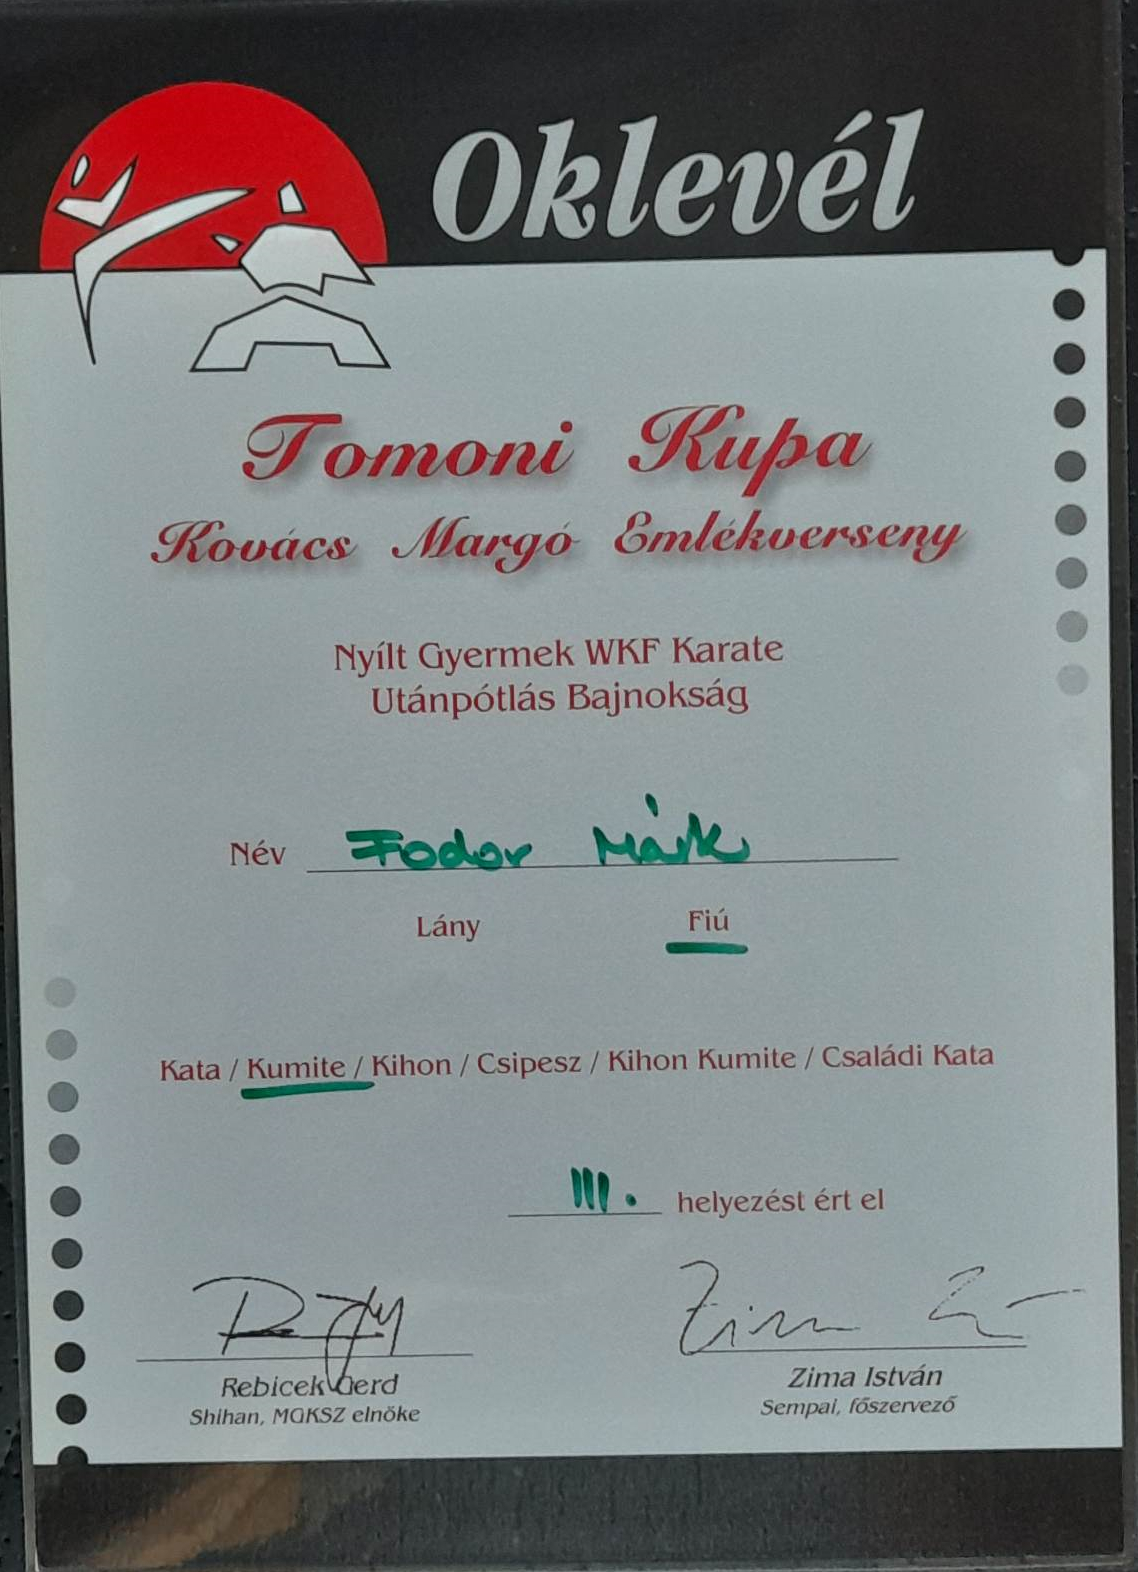 Oklevél
Tomoni Kupa
Kovács Margó Emlékverseny
Nyílt Gyermek WKF Karate
Utánpótlás Bajnokság
Név Fodor Márk
Lány Fiú
Kata / Kumite / Kihon / Csipesz / Kihon Kumite / Családi Kata
III. helyezést ért el
Zima
Rebicek Gerd Zima István
Shihan, MGKSZ elnöke Sempai, főszervező